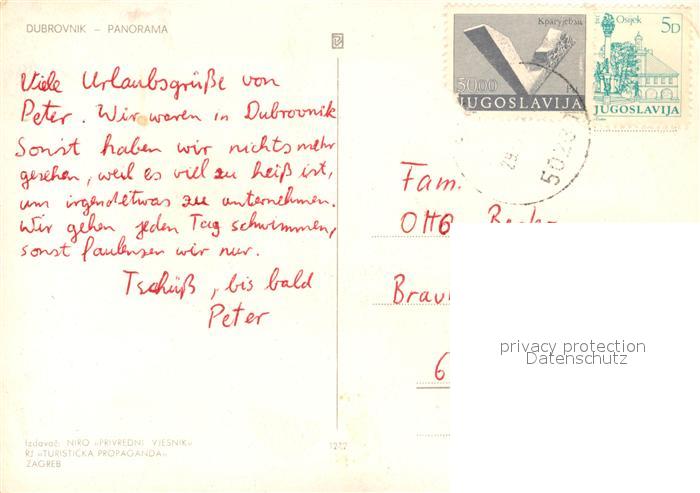 DUBROVNIK – PANORAMA
Viele Urlaubsgrüße von
Peter. Wir waren in Dubrovnik
Sonst haben wir nichts mehr
gesehen, weil es viel zu heiß ist,
um irgendetwas zu unternehmen.
Wir gehen jeden Tag schwimmen,
sonst faulenzen wir nur.
Tschüß, bis bald
Peter
Izdavač: NIRO »PRIVREDNI VJESNIK«
RJ »TURISTIČKA PROPAGANDA«
ZAGREB
1242
Крагујевац
5000
JUGOSLAVIJA
Osijek
5D
JUGOSLAVIJA
Fam.
Otto
privacy protection
Datenschutz
6